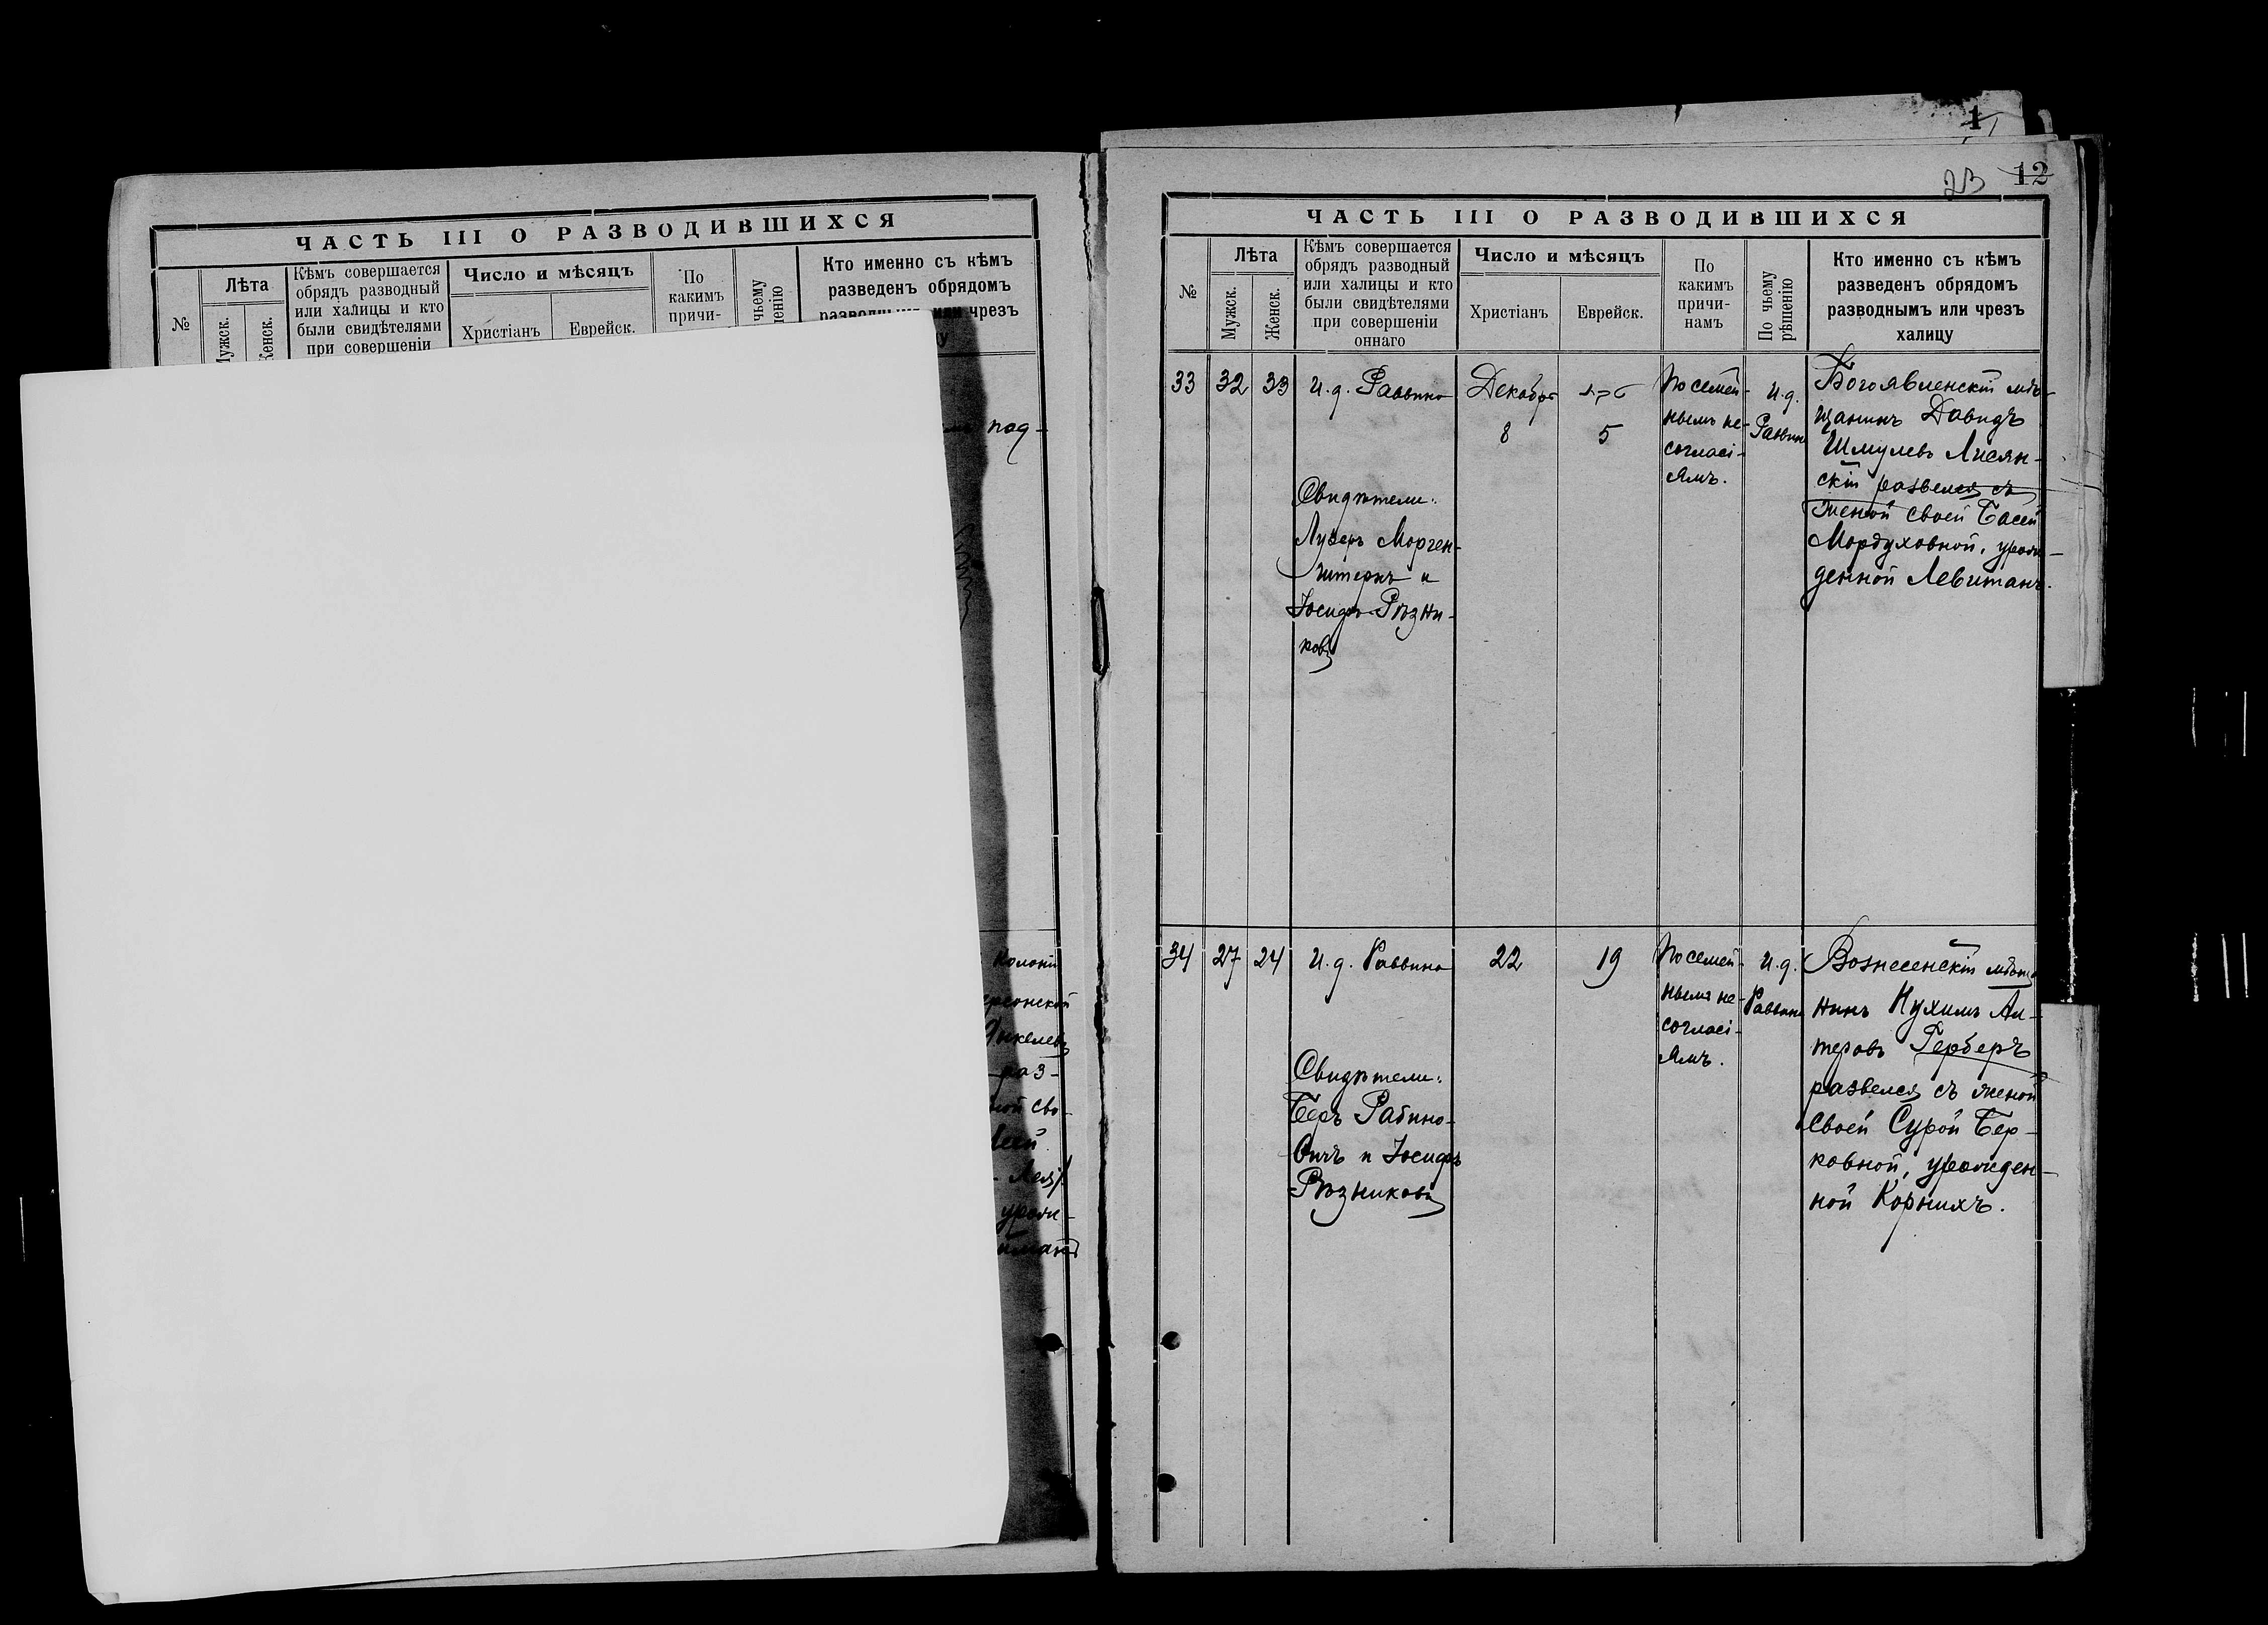 ЧАСТЬ III О РАЗВОДИВШИХСЯ
№
Лѣта
Мужск.
Женск.
Кѣмъ совершается
обрядъ разводный
или халицы и кто
были свидѣтелями
при совершеніи
Число и мѣсяцъ
Христіанъ
Еврейск.
По
какимъ
причи-
чьему
Кто именно съ кѣмъ
разведенъ обрядомъ
чрезъ
под-
Колоніи
Янкелевъ
раз-
ной сво-
урож-
1
23 12
ЧАСТЬ III О РАЗВОДИВШИХСЯ
№
Лѣта
Мужск.
Женск.
Кѣмъ совершается
обрядъ разводный
или халицы и кто
были свидѣтелями
при совершеніи
оннаго
Число и мѣсяцъ
Христіанъ
Еврейск.
По
какимъ
причи-
намъ
По чьему
рѣшенію
Кто именно съ кѣмъ
разведенъ обрядомъ
разводнымъ или чрезъ
халицу
33
32
33
И.д. Раввина
Свидѣтели:
Лузеръ Морген-
штернъ и
Іосифъ Рѣзни-
ковъ
Декабря
8
5
По семей-
нымъ не-
согласі-
ямъ.
И.д.
Раввина
Богоявленскій мѣ-
щанинъ Давидъ
Шмулевъ Лисян-
скій развелся съ
женой своей Басей
Мордуховной, урож-
денной Левитанъ.
34
27
24
И.д. Раввина
Свидѣтели:
Беръ Рабино-
вичъ и Іосифъ
Рѣзниковъ
22
19
По семей-
нымъ не-
согласі-
ямъ.
И.д.
Раввина
Вознесенскій мѣща-
нинъ Нухимъ Ал-
теровъ Герберъ
развелся съ женой
своей Сурой Бер-
ковной, урожден-
ной Корнихъ.